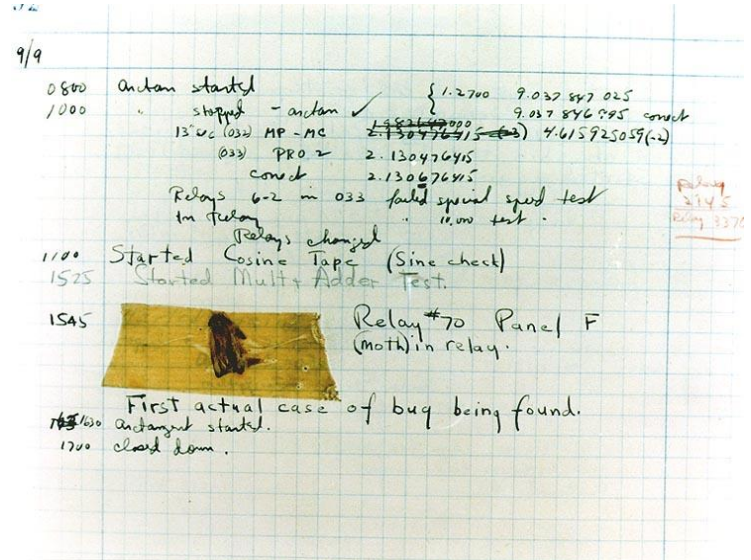 9/9
0800 arctan started { 1.2700 9.037 847 025
1000 " stopped - arctan ✓ 9.037 846 995 correct
13"uc (032) MP - MC 1.982647000 2.130476415 (-3) 4.615925059(-2)
(033) PRO 2 2.130476415
correct 2.130676415
Relays 6-2 in 033 failed special speed test
in relay " 10.000 test .
Relay
2145
Relay 3370
Relays changed
1100 Started Cosine Tape (Sine check)
1525 Started Mult+ Adder Test.
1545 Relay #70 Panel F
(moth) in relay.
First actual case of bug being found.
1630 arctangent started.
1700 closed down.